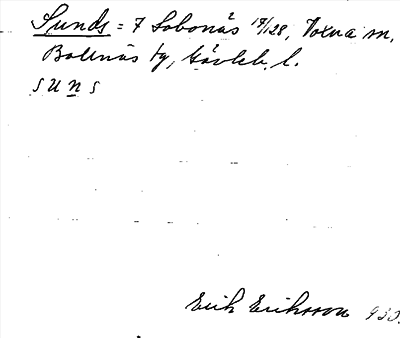 Sunds = 7 Lobonäs 17/128, Voxna sn,
Bollnäs tg, Gävleb. l.
suns
Erik Eriksson 933.